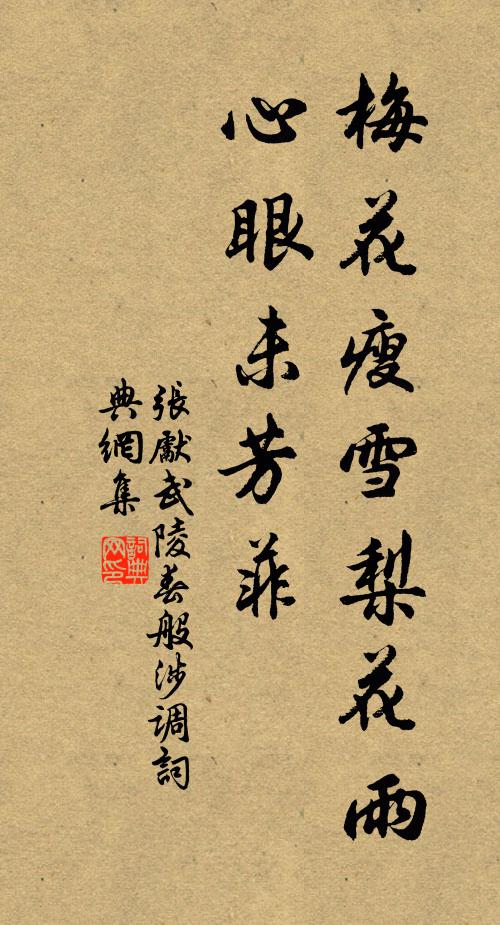 梅花瘦雪梨花雨
心眼未芳菲
張獻武陵春般涉调詞
典網集
詞典
网印